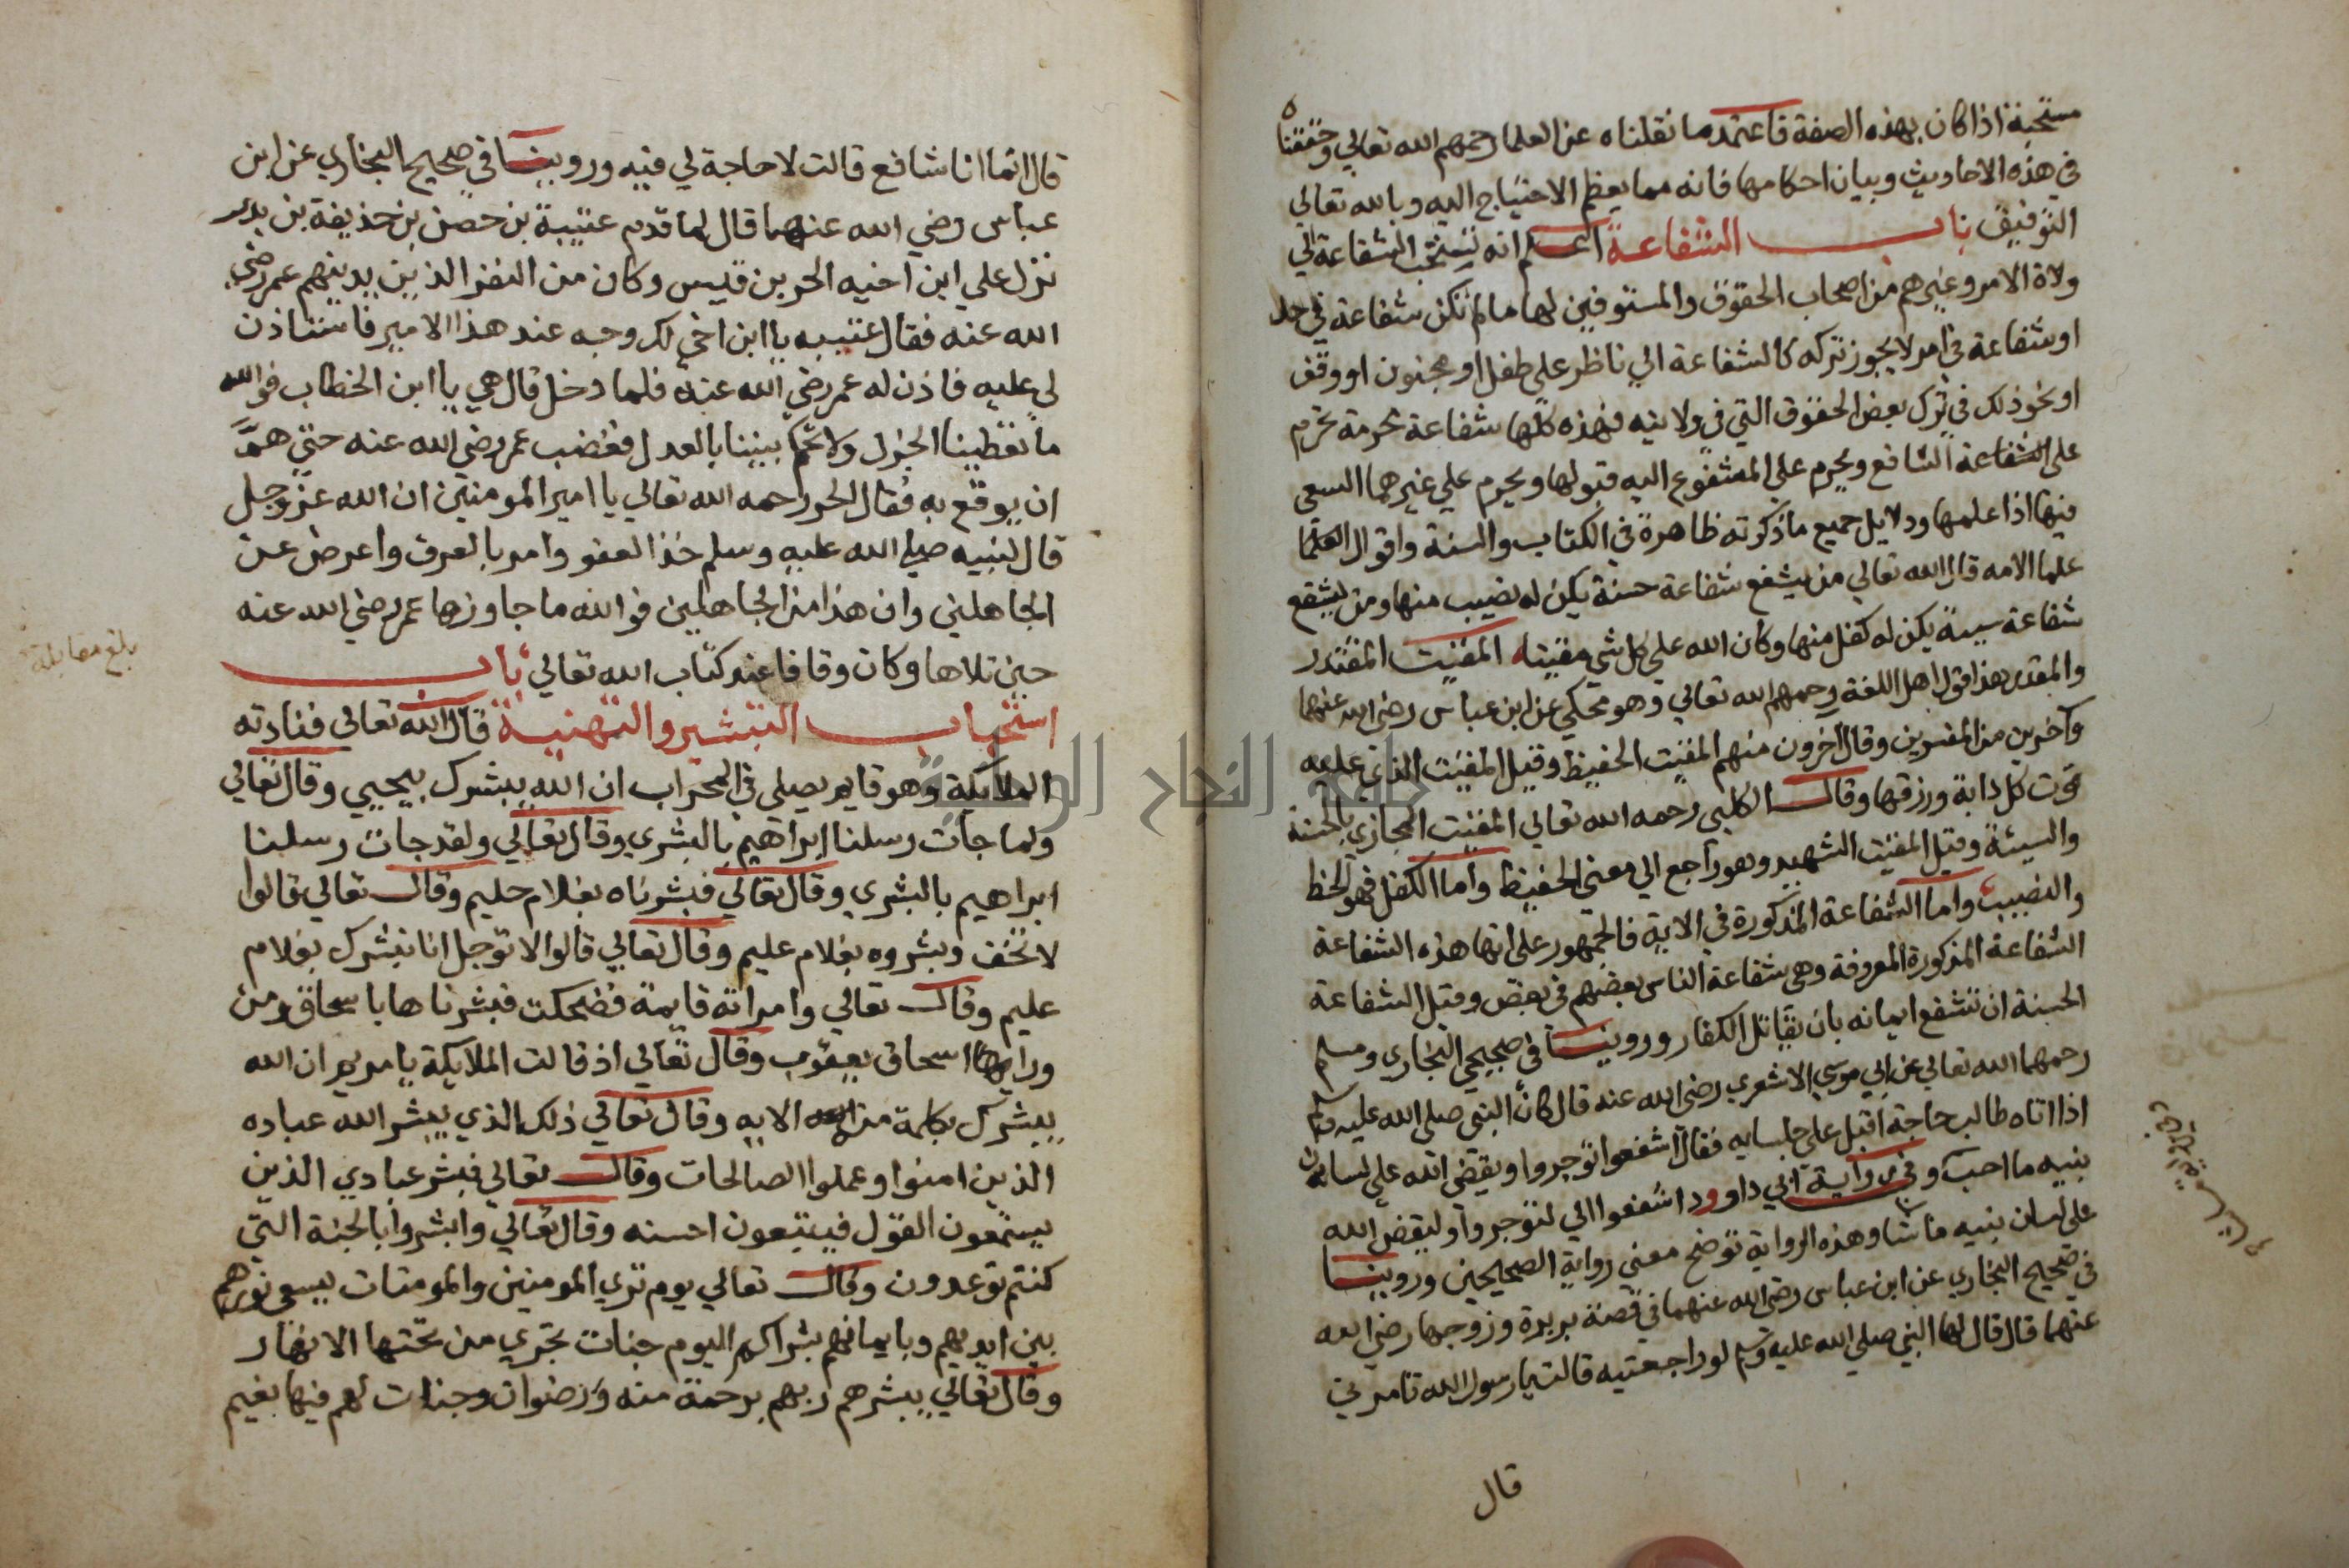 مستحبة اذا كان بهذه الصفة فاعتمد ما نقلناه عن العلما رحمهم الله تعالي وحققنا
في هذه الاحاديث وبيان احكامها فانه مما يعظم الاحتياج اليه وبالله تعالي
التوفيق باب الشفاعة اعلم انه يستحب الشفاعة الي
ولاة الامر وغيرهم من اصحاب الحقوق والمستوفين لها ما لم تكن شفاعة في حد
او شفاعة في امر لا يجوز تركه كالشفاعة الي ناظر علي طفل او مجنون او وقف
او نحو ذلك في ترك بعض الحقوق التي في ولايته فهذه كلها شفاعة محرمة تحرم
علي الشافع ويحرم علي المشفوع اليه قبولها ويحرم علي غيرهما السعي
فيها اذا علمها ودلايل جميع ما ذكرته ظاهرة في الكتاب والسنة واقوال
علما الامه قال الله تعالي من يشفع شفاعة حسنة يكن له نصيب منها ومن يشفع
شفاعة سيية يكن له كفل منها وكان الله علي كل شي مقيتا المقيت المقتدر
والمقدر هذا قول اهل اللغة رحمهم الله تعالي وهو محكي عن ابن عباس رضي الله عنهما
وآخرين من المفسرين وقال آخرون منهم المقيت الحفيظ وقيل المقيت الذي عليه
قوت كل دابة ورزقها وقال الكلبي رحمه الله تعالي المقيت المجازي بالحسنة
والسيئة وقيل المقيت الشهيد وهو راجع الي معني الحفيظ واما الكفل فهو الحظ
والنصيب واما الشفاعة المذكورة في الاية فالجمهور علي انها هذه الشفاعة
الشفاعة المذكورة المعروفة وهي شفاعة الناس بعضهم في بعض وقيل الشفاعة
الحسنة ان تشفع ايمانه بان يقاتل الكفار وروينا في صحيحي البخاري ومسلم
رحمهما الله تعالي عن ابي موسي الاشعري رضي الله عنه قال كان النبي صلي الله عليه وسلم
اذا اتاه طالب حاجة اقبل علي جلسايه فقال اشفعوا توجروا ويقضي الله علي لسان
نبيه ما احب وفي رواية ابي داوود اشفعوا الي لتوجروا وليقض الله
علي لسان نبيه ما شا وهذه الرواية توضح معني رواية الصحيحين وروينا
في صحيح البخاري عن ابن عباس رضي الله عنهما في قصة بريرة وزوجها رضي الله
عنهما قال قال لها النبي صلي الله عليه وسلم لو راجعتيه قالت يا رسول الله تامرني
قال
قال انما انا شافع قالت لا حاجة لي فيه وروينا في صحيح البخاري عن ابن
عباس رضي الله عنهما قال لما قدم عتيبة بن حصن بن حذيفة بن بدر
نزل علي ابن اخيه الحر بن قيس وكان من النفر الذين يدنيهم عمر رضي
الله عنه فقال عتيبه يا ابن اخي لك وجه عند هذا الامير فاستاذن
لي عليه فاذن له عمر رضي الله عنه فلما دخل قال هي يا ابن الخطاب فوالله
ما تعطينا الجزل ولا تحكم بيننا بالعدل فغضب عمر رضي الله عنه حتي همَّ
ان يوقع به فقال الحر رحمه الله تعالي يا امير المومنين ان الله عز وجل
قال لنبيه صلي الله عليه وسلم خذ العفو وامر بالعرف واعرض عن
الجاهلين وان هذا من الجاهلين فوالله ما جاوزها عمر رضي الله عنه
حين تلاها وكان وقافا عند كتاب الله تعالي باب
استحباب التبشير والتهنية قال الله تعالي فنادته
الملايكة وهو قايم يصلي في المحراب ان الله يبشرك بيحيي وقال تعالي
ولما جات رسلنا ابراهيم بالبشري وقال تعالي ولقد جات رسلنا
ابراهيم بالبشري وقال تعالي فبشرناه بغلام حليم وقال تعالي قالوا
لا تخف وبشروه بغلام عليم وقال تعالي قالوا لا توجل انا نبشرك بغلام
عليم وقال تعالي وامراته قايمة فضحكت فبشرناها باسحاق ومن
ورا اسحاق يعقوب وقال تعالي اذ قالت الملايكة يا مريم ان الله
يبشرك بكلمة منه الايه وقال تعالي ذلك الذي يبشر الله عباده
الذين امنوا وعملوا الصالحات وقال تعالي فبشر عبادي الذين
يستمعون القول فيتبعون احسنه وقال تعالي وابشروا بالجنة التي
كنتم توعدون وقال تعالي يوم تري المومنين والمومنات يسعي نورهم
بين ايديهم وبايمانهم بشراكم اليوم جنات تجري من تحتها الانهار
وقال تعالي يبشرهم ربهم برحمة منه ورضوان وجنات لهم فيها نعيم
بلغ مقابلة
جامعة النجاح الوطنية